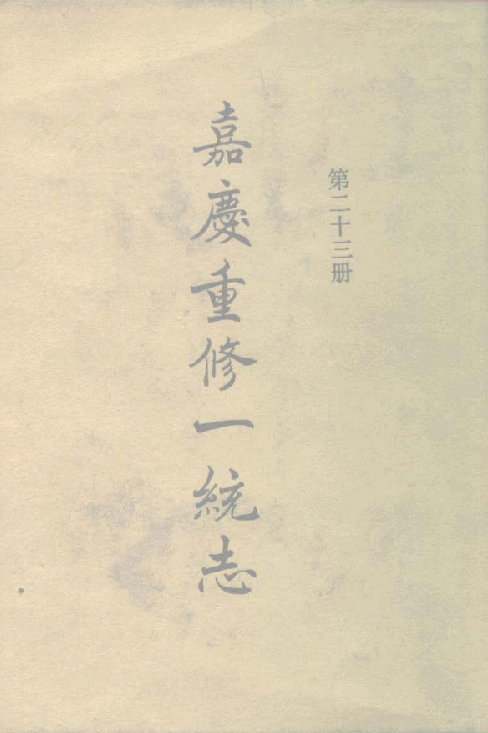 第二十三册
嘉慶重修一統志